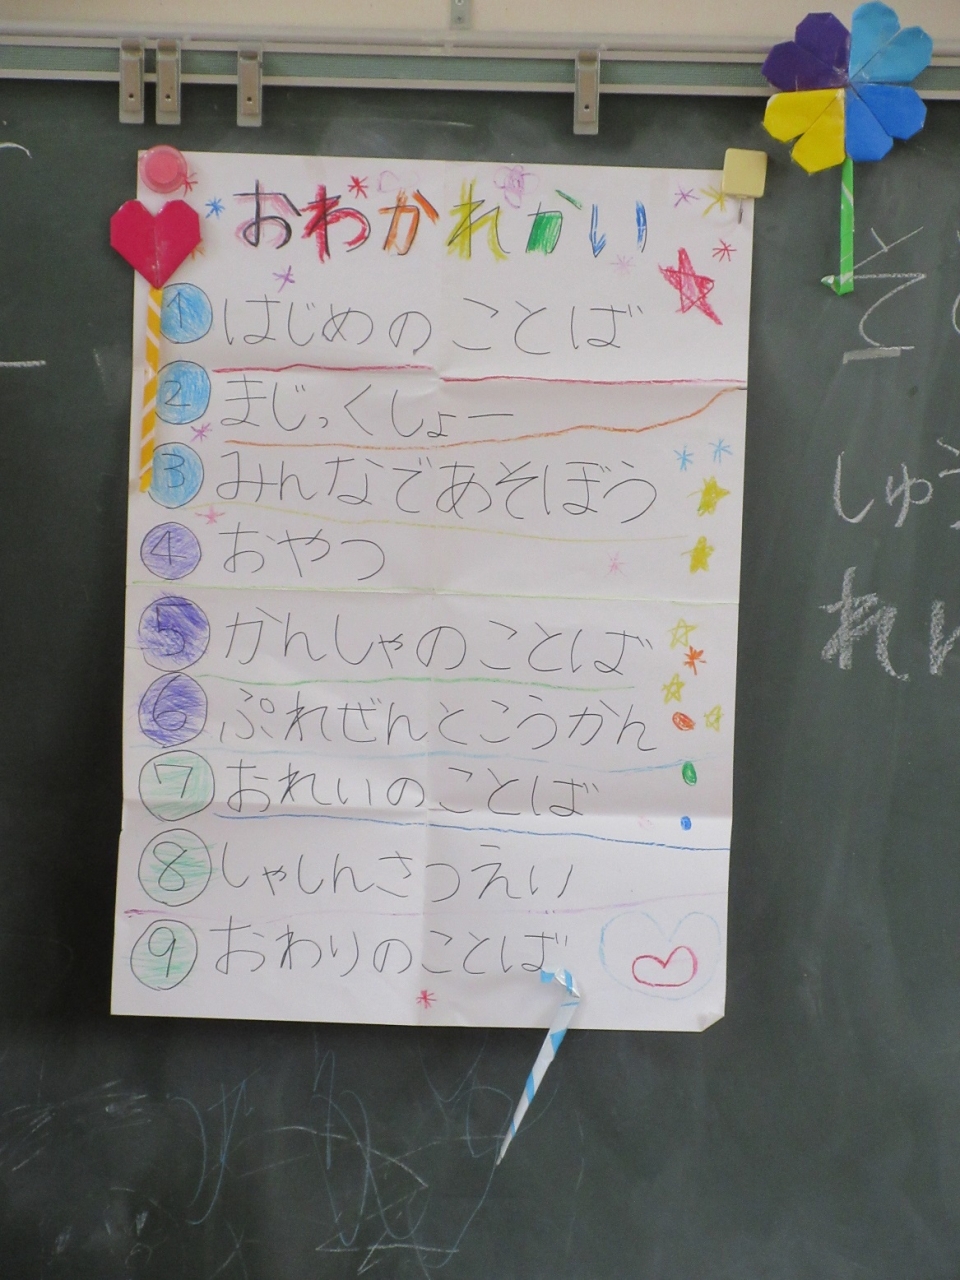 おわかれかい
1 はじめのことば
2 まじっくしょー
3 みんなであそぼう
4 おやつ
5 かんしゃのことば
6 ぷれぜんとこうかん
7 おれいのことば
8 しゃしんさつえい
9 おわりのことば
そ
しゅう
れん